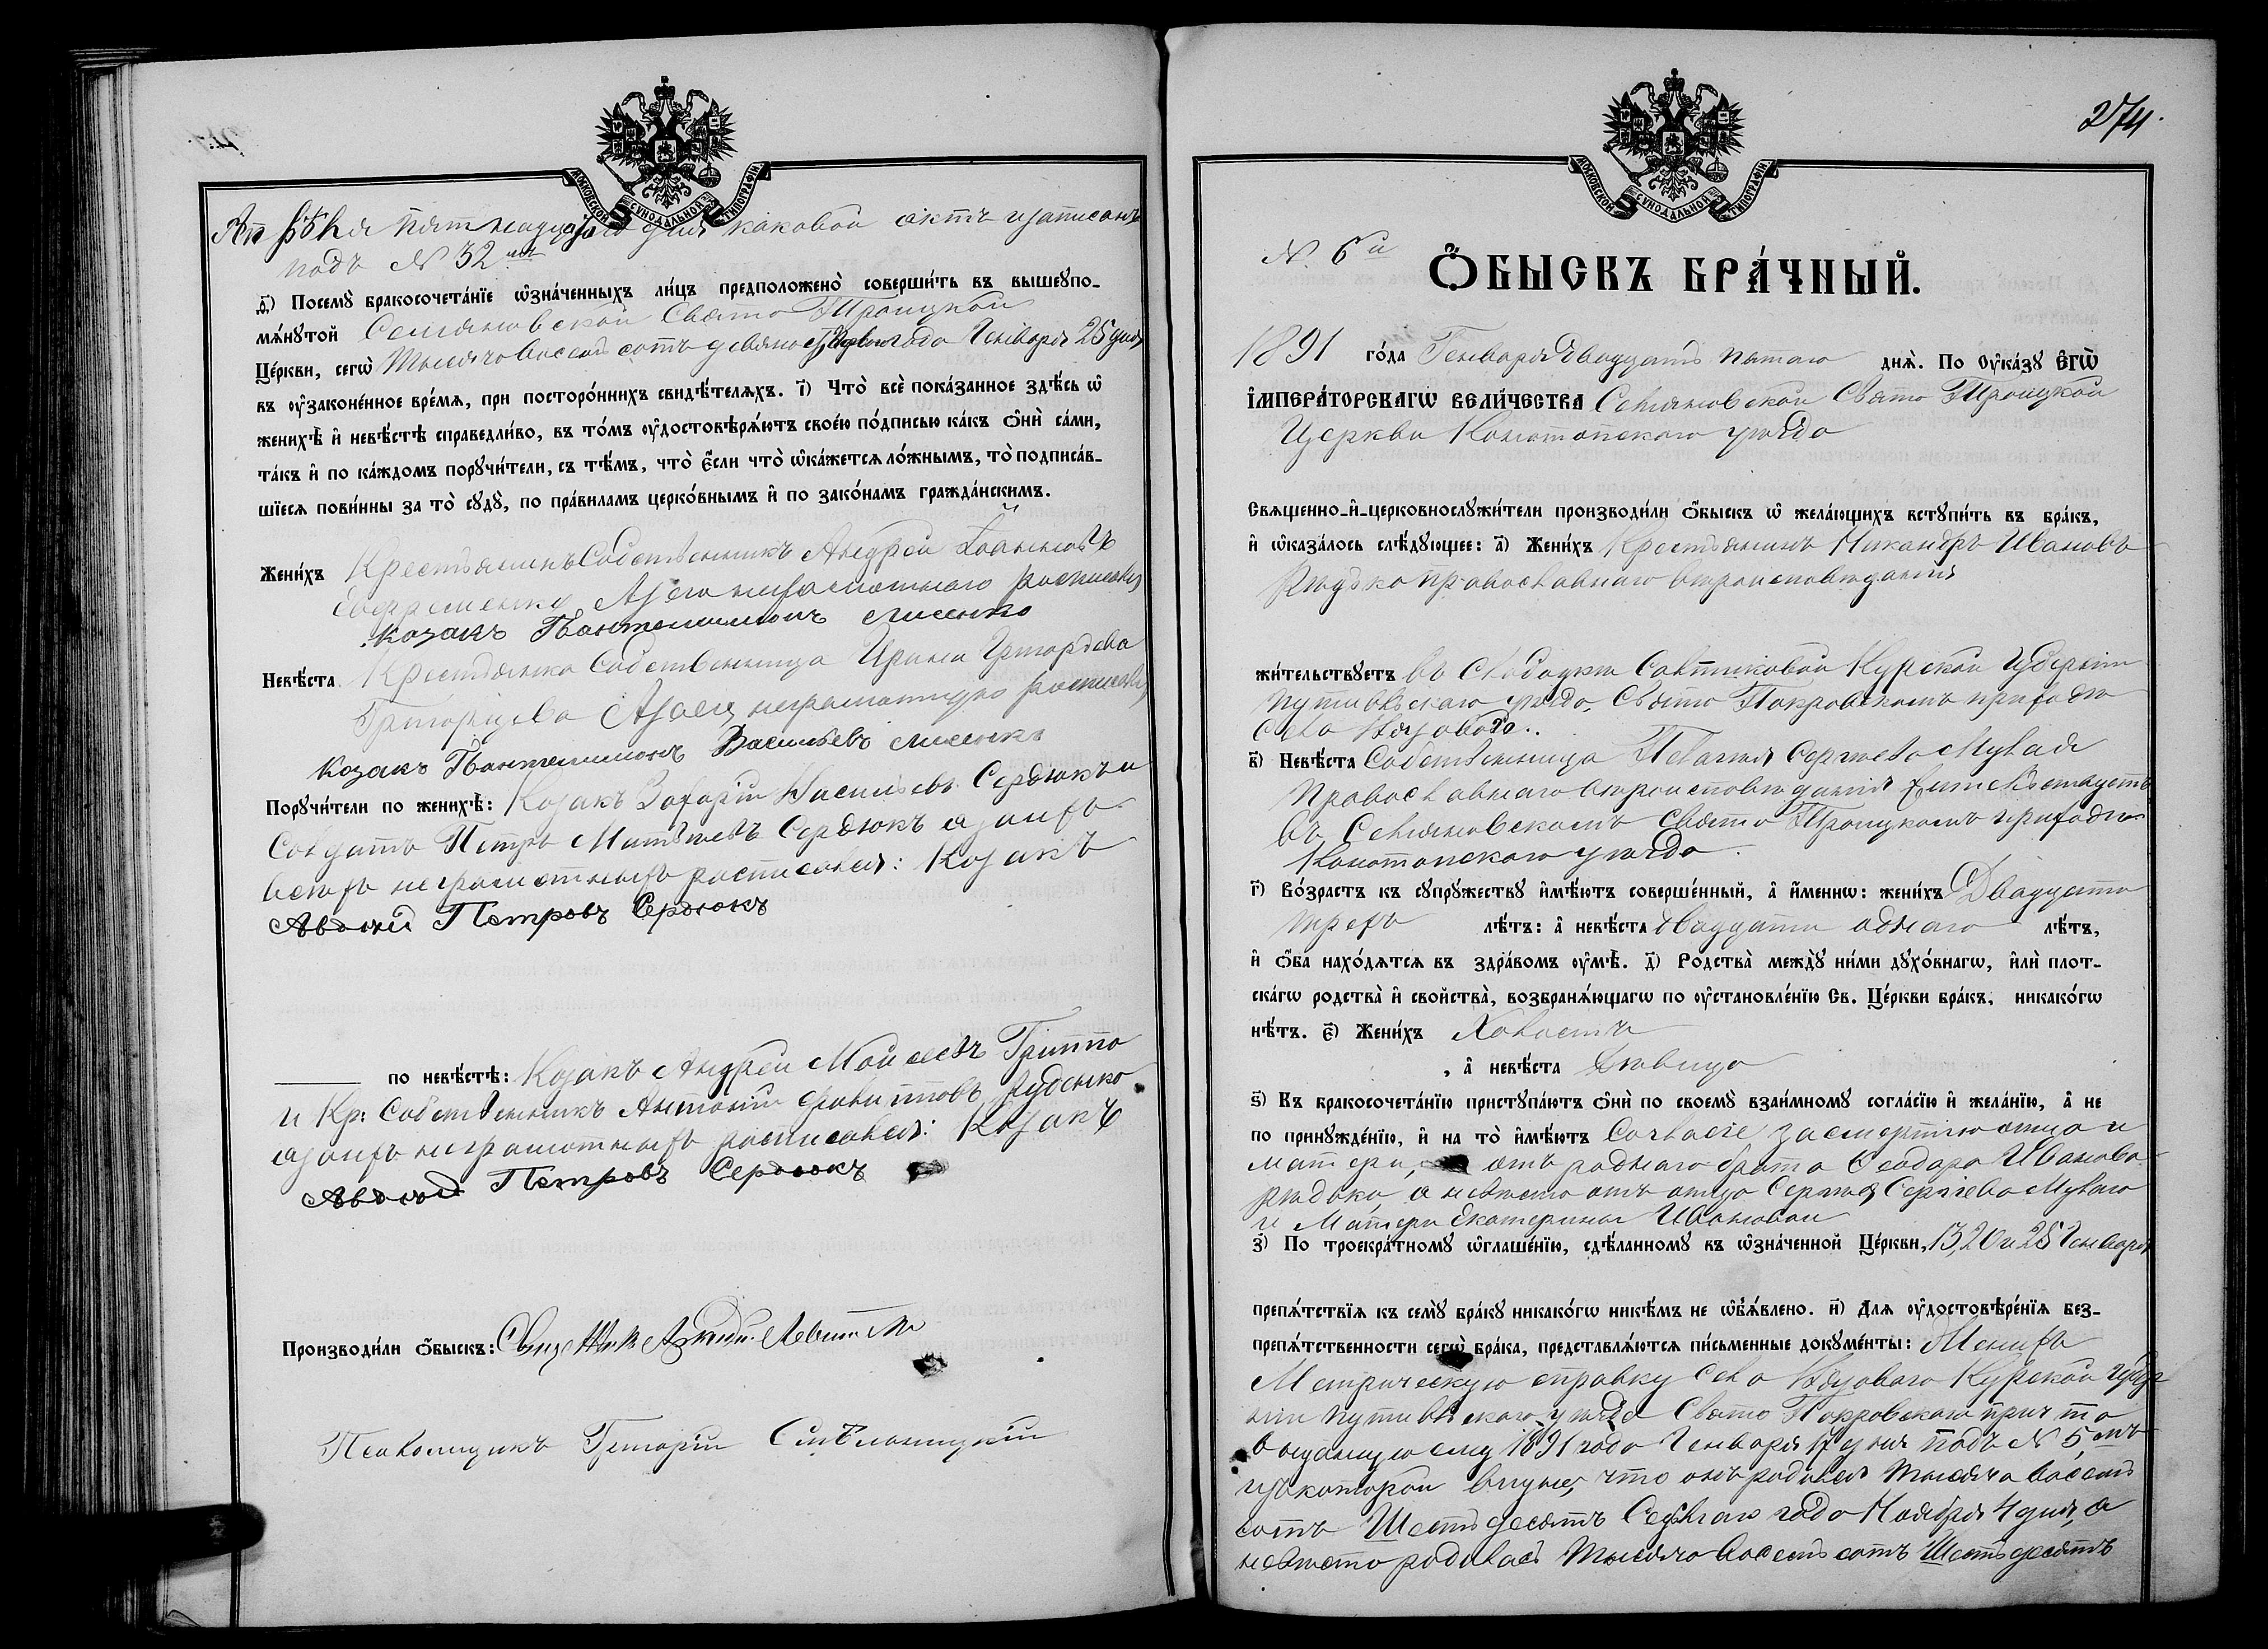 МОСКОВСКОЙ СѴНОДАЛЬНОЙ ТИПОГРАФІИ
Апрѣля пятнадцатаго дня каковой актъ изаписанъ
подъ № 32мъ
ѳ҃) Посемꙋ̀ бракосочета́нїе ѡ҆зна́ченныхъ ли́цъ предположено̀ соверши́ть въ вышеꙋпо-
мѧ́нꙋтой Семяновской Свято Троицкой
Це́ркви, сегѡ̀ Тысяча восемь сотъ девяносто Перваго года Генваря 25 дня
въ ᲂу҆законе́нное вре́мѧ, при посторо́ннихъ свидѣ́телѧхъ. і҃) Что̀ всѐ пока́занное здѣ́сь ѡ҆
женихѣ̀ и҆ невѣ́стѣ справедли́во, въ то́мъ ᲂу҆достовѣрѧ́ютъ свое́ю по́дписью ка́къ ѻ҆нѝ са́ми,
та́къ и҆ по ка́ждомъ порꙋчи́тели, съ тѣ́мъ, что̀ є҆́сли что̀ ѡ҆ка́жетсѧ ло́жнымъ, то̀ подписа́в-
шїесѧ пови́нны за то̀ сꙋдꙋ̀, по пра́виламъ церко́внымъ и҆ по зако́намъ гражда́нскимъ.
Жени́хъ Крестьянинъ Собственникъ Андрей Іоанновъ
Ефременко Азъ его неграмотнаго росписался
козакъ Пантелимонъ Лисенко
Невѣ́ста Крестьянка Собственница Ирина
Григорьева Азаея неграмотную росписался
Козакъ Пантелимонъ Васильевъ Лисенко
Порꙋчи́тели по женихѣ̀: Козакъ Захарій Васильевъ Сердюкъ и
Солдатъ Петръ Матвѣевъ Сердюкъ азаихъ
всехъ неграмотныхъ росписался: Козакъ
Петровъ Сердюкъ
по невѣ́стѣ: Козакъ Андрей Моисеевъ Гриппа
и Кр: Собственникъ Антоній Руденко
азаихъ неграмотныхъ росписался: Козакъ
Петровъ Сердюкъ
Производи́ли ѻ҆́быскъ: Священникъ
Псаломщикъ Григорій
274.
МОСКОВСКОЙ СѴНОДАЛЬНОЙ ТИПОГРАФІИ
№ 6й
Ѻ҆БЫСКЪ БРА́ЧНЫЙ.
1891 го́да Генваря двадцать пятаго днѧ̀. По ᲂу҆ка́зꙋ Є҆ГѠ̀
І҆МПЕРА́ТОРСКАГѠ ВЕЛИ́ЧЕСТВА Семяновской Свято Троицкой
Церкви Конотопскаго уѣзда
Свѧщенно-и҆-церковнослꙋжи́тели производи́ли ѻ҆́быскъ ѡ҆ жела́ющихъ встꙋпи́ть въ бра́къ,
и҆ ѡ҆каза́лось слѣ́дꙋющее: а҃) Жени́хъ Крестьянинъ Никандръ Ивановъ
Рѣдько православнаго вѣроисповѣданія
жи́тельствꙋетъ въ Слободкѣ Курской Губерніи
Путивльскаго уѣзда, Свято Покровскомъ приходѣ
Села Вязоваго.
в҃) Невѣ́ста Собственница Пелагія Сергѣева
Православнаго вѣроисповѣданія жительствуетъ
въ Семяновскомъ Свято Троицкомъ приходѣ
Конотопскаго уѣзда.
г҃) Во́зрастъ къ сꙋпрꙋ́жествꙋ и҆мѣ́ютъ соверше́нный, а҆ и҆́меннѡ: жени́хъ Двадцати
трехъ лѣ́тъ: а҆ невѣ́ста двадцати однаго лѣ́тъ,
и҆ ѻ҆́ба нахо́дѧтсѧ въ здра́вомъ ᲂу҆мѣ̀. д҃) Ро́дства̀ междꙋ̀ ни́ми дꙋхо́внагѡ, и҆лѝ плот-
ска́гѡ родства̀ и҆ сво́йства̀, возбранѧ́ющагѡ по ᲂу҆становле́нїю Св. Це́ркви бра́къ, никако́гѡ
нѣ́тъ. є҃) Жени́хъ Холостъ
, а҆ невѣ́ста Дѣвица
ѕ҃) Къ бракосочета́нїю пристꙋпа́ютъ ѻ҆нѝ по своемꙋ̀ взаи́мномꙋ согла́сїю и҆ жела́нїю, а҆ не
по принꙋжде́нїю, и҆ на то̀ и҆мѣ́ютъ Согласіе за смертію отца и
матери, отъ роднаго брата Ѳеодора Иванова
Рѣдька, а невѣста отъ отца Сергѣя Сергіева
и Матери Екатерины Ивановой
з҃) По троекра́тномꙋ ѡ҆глаше́нїю, сдѣ́ланномꙋ въ ѡ҆зна́ченной Це́ркви, 13, 20 и 25 Генваря
препѧ́тствїѧ къ семꙋ̀ бра́кꙋ никако́гѡ никѣ́мъ не ѡ҆б̾ѧ́влено. и҃) Длѧ ᲂу҆достовѣре́нїѧ без-
препѧ́тственности сегѡ̀ бра́ка, представлѧ́ютсѧ пи́сьменные докꙋме́нты: Женихъ
Метрическую справку Села Вязоваго Курской Губер
ніи Путивльскаго уѣзда Свято Покровскаго причта
выданную ему 1891 года Генваря 17 дня подъ № 5мъ
изъ которой видно, что онъ родился тысяча восемь
сотъ Шестьдесятъ Седьмаго года Ноября 4 дня, а
невѣста родилась Тысяча восемь сотъ Шестьдесятъ